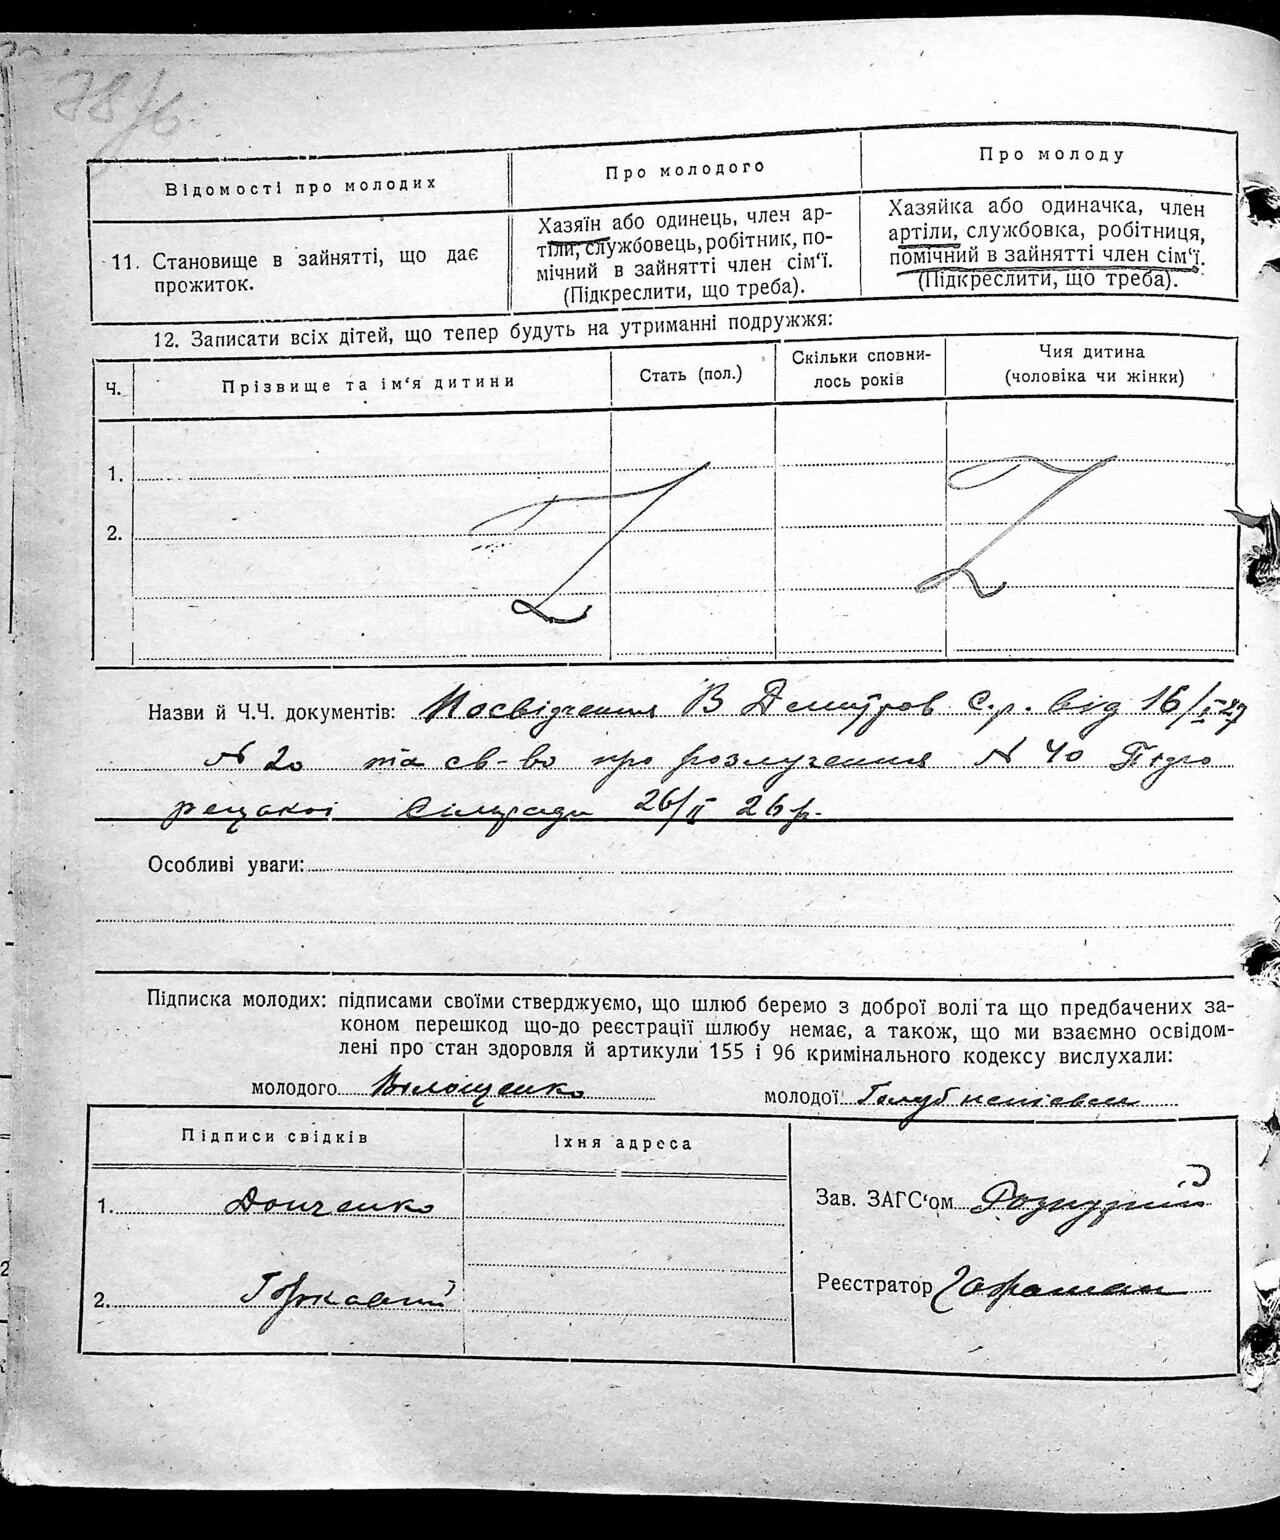 78/6
Відомості про молодих
Про молодого
Про молоду
11. Становище в зайнятті, що дає
прожиток.
Хазяїн або одинець, член ар-
тіли, службовець, робітник, по-
мічний в зайнятті член сім‘ї.
(Підкреслити, що треба).
Хазяйка або одиначка, член
артіли, службовка, робітниця,
помічний в зайнятті член сім‘ї.
(Підкреслити, що треба).
12. Записати всіх дітей, що тепер будуть на утриманні подружжя:
Ч.
Прізвище та ім‘я дитини
Стать (пол.)
Скільки сповни-
лось років
Чия дитина
(чоловіка чи жінки)
1.
2.
Назви й Ч.Ч. документів: Посвідчення В Дмитров С.р. від 16/I-27
N 20 та св-во про розлучення N 40
Сільради 26/II 26р.
Особливі уваги:
Підписка молодих: підписами своїми стверджуємо, що шлюб беремо з доброї волі та що предбачених за-
коном перешкод що-до реєстрації шлюбу немає, а також, що ми взаємно освідом-
лені про стан здоровля й артикули 155 і 96 кримінального кодексу вислухали:
молодого Волощенко
молодої Голуб
Підписи свідків
Їхня адреса
1. Донченко
2.
Зав. ЗАГС‘ом
Реєстратор